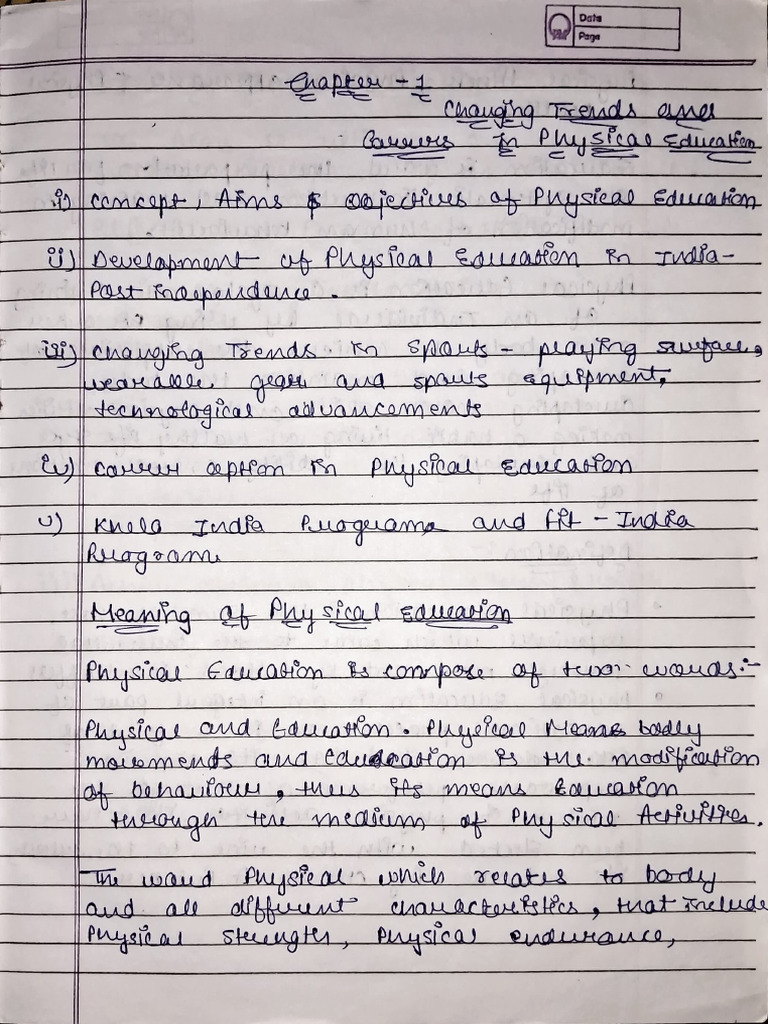 Date
Page
Chapter - 1
Changing Trends and
Careers in Physical Education
i) Concept, Aims & Objectives of Physical Education
ii) Development of Physical Education in India -
Post independence.
iii) Changing Trends in Sports - playing surface,
wearable gear and sports equipment,
technological advancements
iv) Career option in Physical Education
v) Khelo India Programe and Fit - India
Program
Meaning of Physical Education
Physical Education is compose of two words :-
Physical and Education. Physical Means bodly
movements and Education is the modification
of behaviour, thus its means Education
through the medium of Physical Activities.
The word Physical which relates to body
and all different characteristics, that include
Physical strength, Physical endurance,